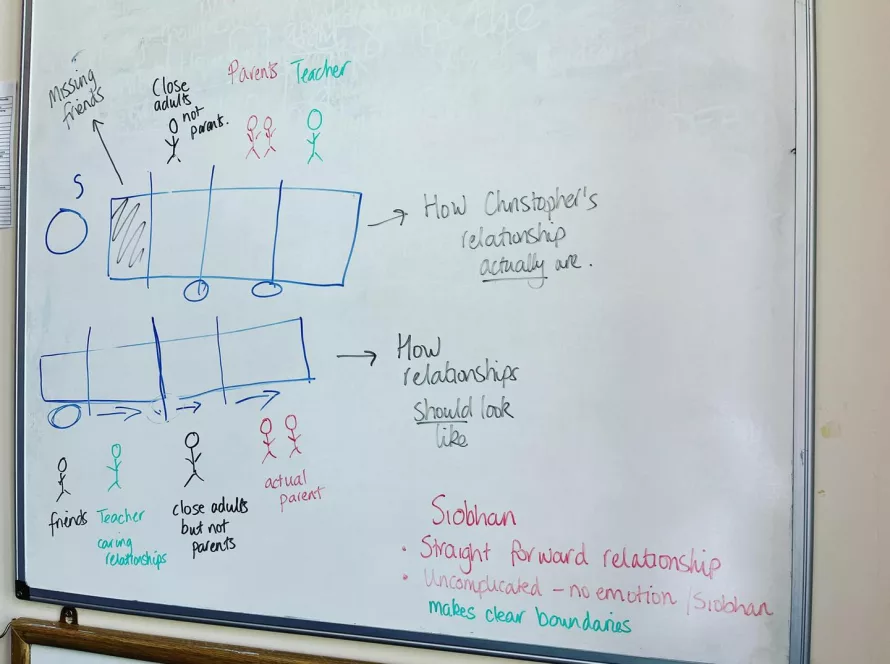 Missing
friends
Close
adults
not
parents.
Parents
Teacher
S
How Christopher's
relationship
actually are.
How
relationships
should look
like
friends
Teacher
caring
relationships
close adults
but not
parents
actual
parent
Siobhan
• Straight forward relationship
• Uncomplicated – no emotion / Siobhan
makes clear boundaries